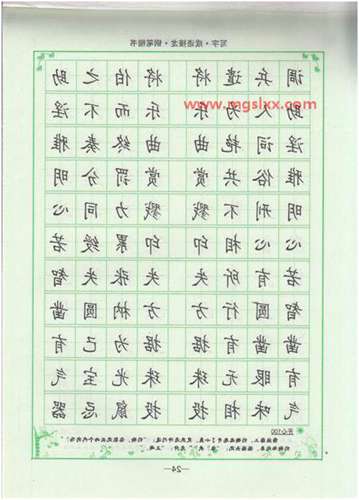 写字·成语接龙·钢笔楷书
调兵遣将 将伯之助
www.mgslxx.com
助人为乐 乐而不淫
淫词艳曲 曲终奏雅
雅俗共赏 赏罚分明
明刑不戮 戮力同心
心心相印 印累绶若
若有所失 失张失智
智圆行方 方枘圆凿
凿凿有据 据为己有
有眼无珠 珠光宝气
气味相投 投鼠忌器
开心100
—24—